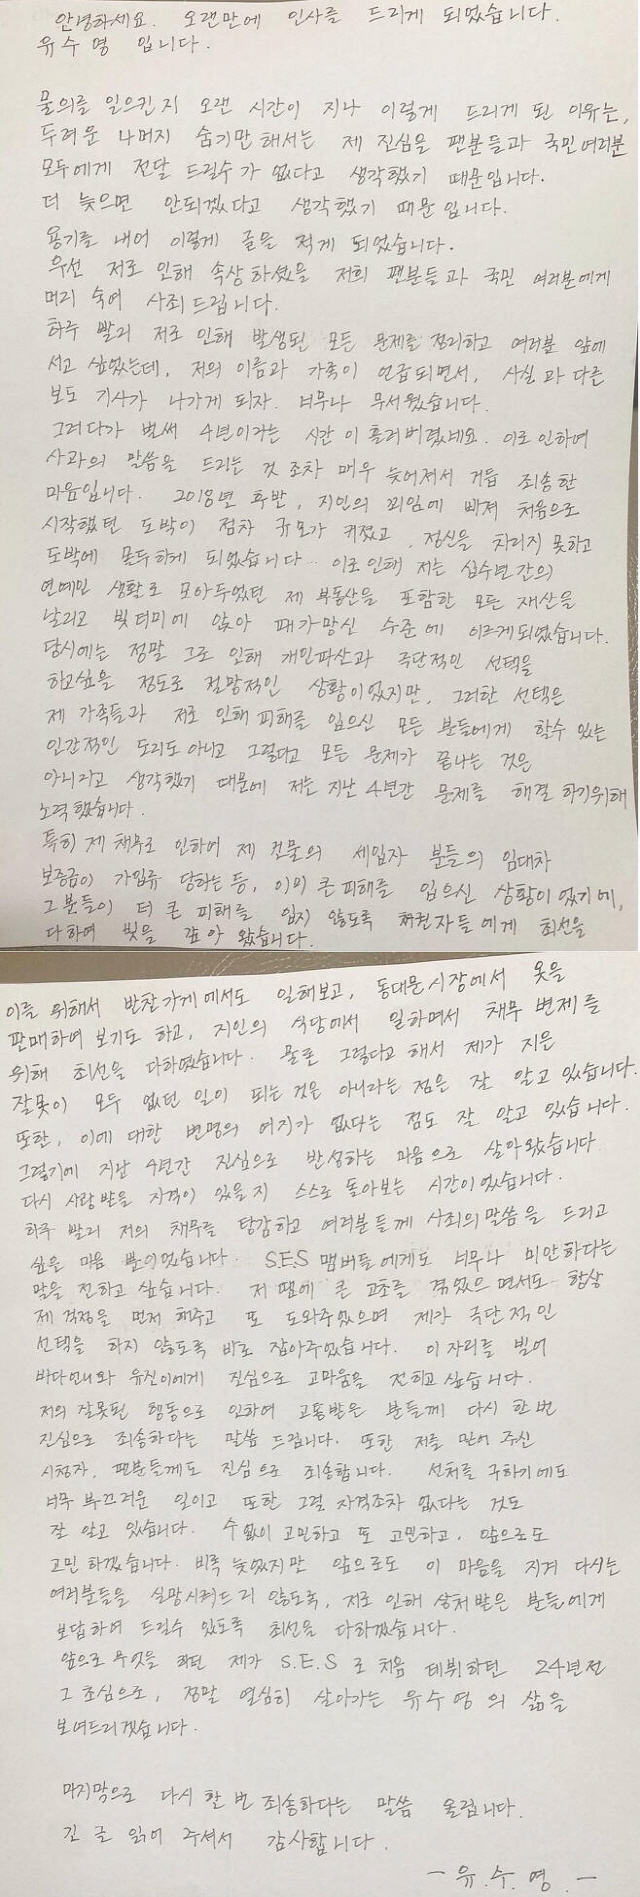 안녕하세요. 오랜만에 인사를 드리게 되었습니다.
유수영 입니다.
물의를 일으킨지 오랜 시간이 지나 이렇게 드리게 된 이유는,
두려운 나머지 숨기만 해서는 제 진심을 팬분들과 국민여러분
모두에게 전달 드릴수가 없다고 생각했기 때문입니다.
더 늦으면 안되겠다고 생각했기 때문입니다.
용기를 내어 이렇게 글을 적게 되었습니다.
우선 저로 인해 속상하셨을 저희 팬분들과 국민 여러분에게
머리 숙여 사죄드립니다.
하루 빨리 저로 인해 발생된 모든 문제를 정리하고 여러분 앞에
서고 싶었는데, 저의 이름과 가족이 언급되면서, 사실과 다른
보도 기사가 나가게 되자. 너무나 무서웠습니다.
그러다가 벌써 4년이라는 시간이 흘러버렸네요. 이로 인하여
사과의 말씀을 드리는 것 조차 매우 늦어져서 거듭 죄송한
마음입니다. 2018년 후반, 지인의 꾀임에 빠져 처음으로
시작했던 도박이 점차 규모가 커졌고, 정신을 차리지 못하고
도박에 몰두하게 되었습니다.. 이로인해 저는 십수년간의
연예인 생활로 모아두었던 제 부동산을 포함한 모든 재산을
날리고 빚더미에 앉아 패가망신 수준에 이르게되었습니다.
당시에는 정말 그로 인해 개인파산과 극단적인 선택을
하고싶을 정도로 절망적인 상황이었지만, 그러한 선택은
제 가족들과 저로 인해 피해를 입으신 모든 분들에게 할수 있는
인간적인 도리도 아니고 그렇다고 모든 문제가 끝나는 것은
아니라고 생각했기 때문에 저는 지난 4년간 문제를 해결하기위해
노력했습니다.
특히 제 채무로 인하여 제 건물의 세입자 분들의 임대차
보증금이 가압류 당하는 등, 이미 큰 피해를 입으신 상황이었기에,
그분들이 더 큰 피해를 입지 않도록 채권자들에게 최선을
다하여 빚을 갚아 왔습니다.
이를 위해서 반찬가게에서도 일해보고, 동대문시장에서 옷을
판매하여 보기도 하고, 지인의 식당에서 일하면서 채무 변제를
위해 최선을 다하였습니다. 물론 그렇다고 해서 제가 지은
잘못이 모두 없던 일이 되는 것은 아니라는 점은 잘 알고 있습니다.
또한, 이에 대한 변명의 여지가 없다는 점도 잘 알고 있습니다.
그렇기에 지난 4년간 진심으로 반성하는 마음으로 살아왔습니다
다시 사랑받을 자격이 있을지 스스로 돌아보는 시간이었습니다.
하루 빨리 저의 채무를 탕감하고 여러분들께 사죄의말씀을 드리고
싶은 마음 뿐이었습니다. S.E.S 맴버들에게도 너무나 미안하다는
말을 전하고 싶습니다. 저 땜에 큰 고초를 겪었으면서도 항상
제 걱정을 먼저 해주고 또 도와주었으며 제가 극단적인
선택을 하지 않도록 바로 잡아주었습니다. 이 자리를 빌어
바다언니와 유진이에게 진심으로 고마움을 전하고 싶습니다.
저의 잘못된 행동으로 인하여 고통받은 분들께 다시 한번
진심으로 죄송하다는 말씀 드립니다. 또한 저를 믿어 주신
시청자, 팬분들께도 진심으로 죄송합니다. 선처를 구하기에도
너무 부끄러운 일이고 또한 그럴 자격조차 없다는 것도
잘 알고 있습니다. 수없이 고민하고 또 고민하고, 앞으로도
고민 하겠습니다. 비록 늦었지만 앞으로도 이 마음을 지켜 다시는
여러분들을 실망시켜드리 않도록, 저로 인해 상처받은 분들에게
보답하여 드릴수 있도록 최선을 다하겠습니다.
앞으로 무엇을 하던 제가 S.E.S 로 처음 데뷔하던 24년전
그 초심으로, 정말 열심히 살아가는 유수영의 삶을
보여드리겠습니다.
마지막으로 다시 한 번 죄송하다는 말씀 올립니다.
긴 글 읽어 주셔서 감사합니다.
- 유.수.영. -